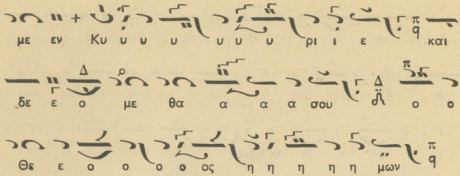 με εν + Κυ υ υ υ υ υ υ ρι ι ε π q και
δε ε ο Δ με θα α α α σου Δ π ο ο
Θε ε ο ο ο ο ος η η η η η μων π q